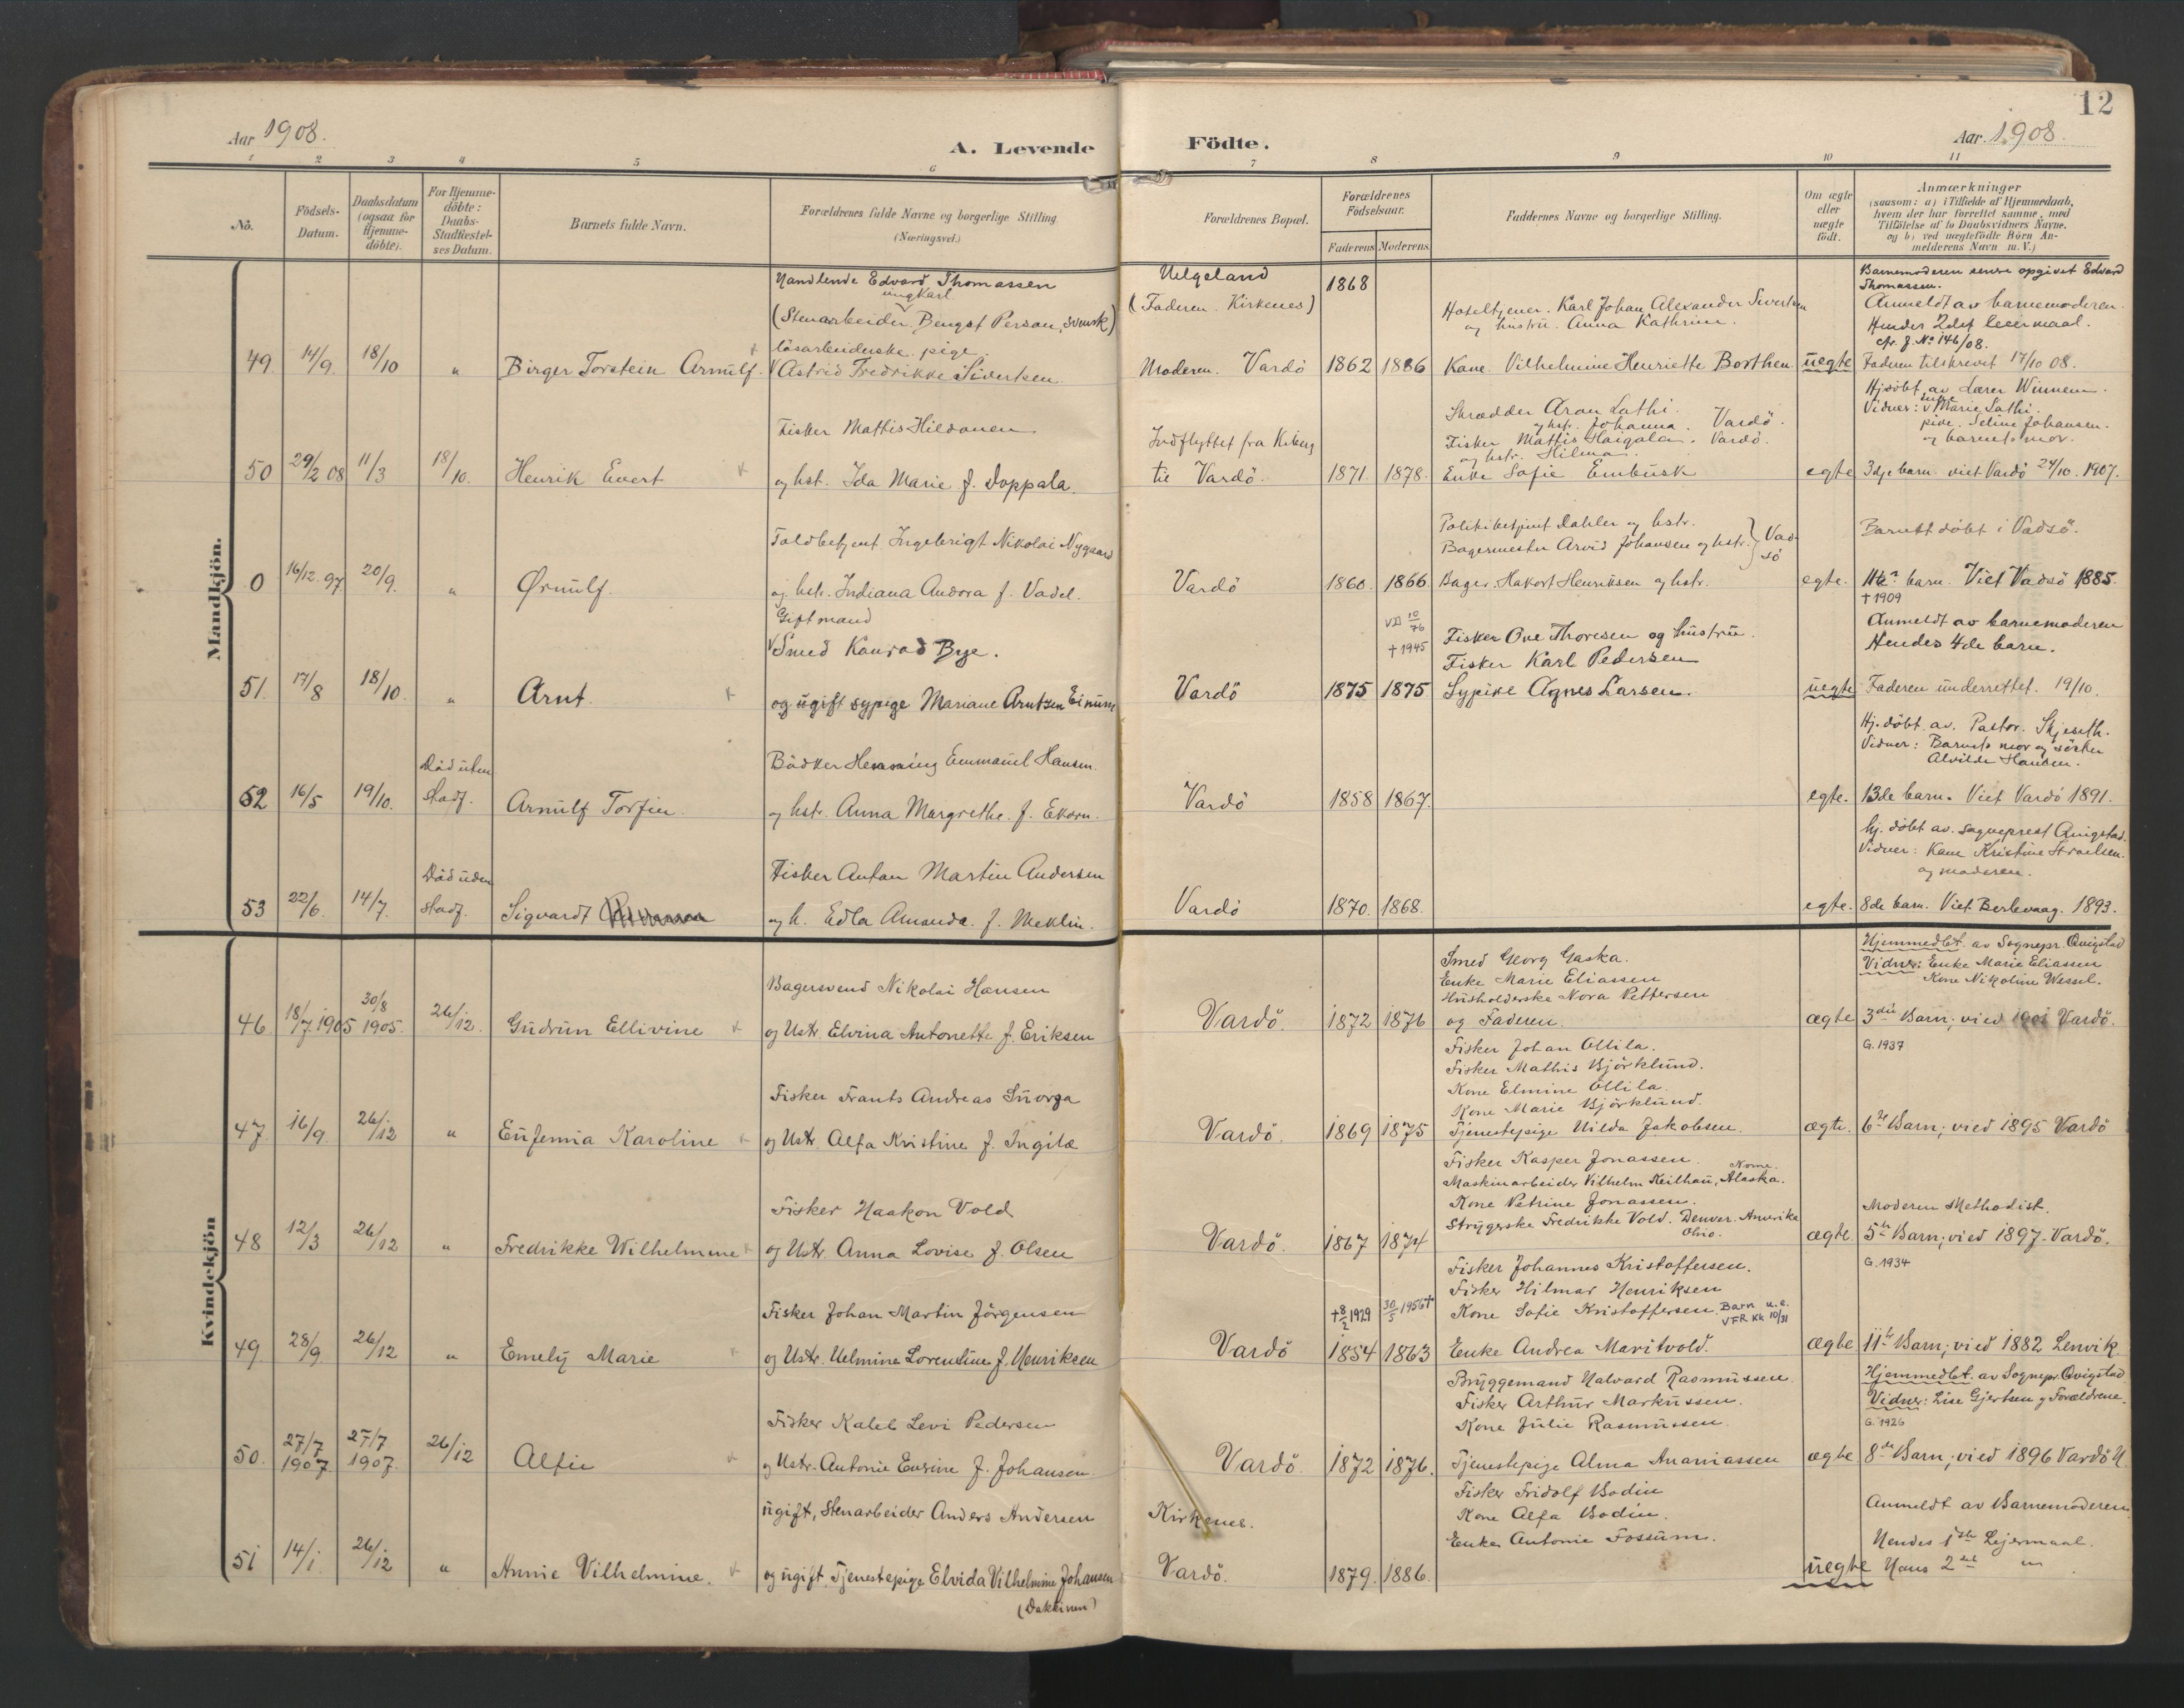 12
Aar 1908.
A. Levende Födte.
Aar 1908.
1 2 3 4 5 6 7 8 9 10 11
No.
Födsels-Datum.
Daabsdatum (ogsaa for Hjemme-döbte).
For Hjemme-döbte: Daabs-Stadfæstel-ses Datum.
Barnets fulde Navn.
Forældrenes fulde Navne og borgerlige Stilling (Næringsvei.)
Forældrenes Bopæl.
Forældrenes Födselsaar.
Faderens Moderens
Faddernes Navne og borgerlige Stilling.
Om ægte eller uægte født.
Anmærkninger
(saasom: a) i Tilfælde af Hjemmedaab,
hvem der har forrettet samme, med
Tilföielse af to Daabsvidners Navne.
og b) ved uægtefödte Börn An-
melderens Navn m. V.)
Mandkjön.
Handlende Edvard Thomassen
ungKarl
(Stenarbeider Bengst Person, svensk)
løsarbeiderske pige
49. 14/9. 18/10 " Birger Torstein Arnulf. Astrid Fredrikke Sivertsen.
Helgeland
(Faderen Kirkenes) 1868
Moderen. Vardö 1862 1886
Hoteltjener. Karl Johan Alexander Sivertsen
og hustru. Anna Kathrine.
Kone Vilhelmine Henriette Borthen uegte
Barnemoderen senere opgivet Edvard
Thomassen.
Anmeldt av barnemoderen.
Hendes 2det leiermaal.
cfr. J. No 146/08.
Faderen tilskrevet 17/10 08.
Fisker Mattis Hildonen
50 29/2 08 11/3 18/10. Henrik Evert og hst. Ida Marie f. Doppala.
Indflyttet fra Kiberg
til Vardö. 1871. 1878.
Skrædder Aron Lathi.
og hst. Johanna. Vardö.
Fisker Mattis Haigala. Vardö.
og hstr. Hilma.
Enke Sofie Embusk egte
Hjdöbt av Lærer Winnem.
Vidner: Enke Marie Lathi.
pike. Seline Johansen.
og barnets mor.
3dje barn. viet Vardö 24/10. 1907.
Toldbetjent Ingebrigt Nikolai Nygaard
0 16/12. 97. 20/9. " Ørnulf. og hstr. Indiana Andora f. Vadel.
Vardö 1860. 1866.
Politibetjent Dahler og hstr.
Bagermester Arvid Johansen og hstr. } Vadsö
Bager. Hakort Henriksen og hstr. egte.
Barnet döbt i Vadsö.
11te barn. Viet Vadsö 1885.
† 1909
Gift mand
Smed Konrad Bye.
51. 17/8 18/10. " Arnt. og ugift sypige Mariane Arntzen Einum
VD 10/76
† 1945
Vardö 1875 1875
Fisker Ove Thoresen og hustru.
Fisker Karl Pedersen
Sypike Agnes Larsen. uegte
Anmeldt av barnemoderen
Hendes 4de barn.
Faderen underrettet. 19/10.
Bödker Henning Emmanuel Hansen.
Död uten
52 16/5 19/10. stadf. Arnulf Torfin. og hst. Anna Margrethe. f. Ekorn.
Vardö 1858 1867. egte.
Hj. döbt av. Pastor. Skjeseth.
Vidner: Barnets mor og söster
Alvilde Hansen.
13de barn. Viet Vardö 1891.
Fisker Anton Martin Andersen
Död uden
53 22/6. 14/7. stadf. Sigvardt og h. Edla Amanda. f. Meklin.
Vardö 1870. 1868. egte.
hj. döbt av. sogneprest Qvigstad.
Vidner: Kone Kristine
og moderen.
8de barn. Viet Berlevaag. 1893.
Kvindekjön
Bagersvend Nikolai Hansen
46 18/7 1905 30/8 1905. 26/12. Gudrun Ellivine og Hstr. Elvina Antonette f. Eriksen
Vardö. 1872 1876
Smed Georg Gaska.
Enke Marie Eliassen
Husholderske Nora Pettersen
og Faderen. ægte
Hjemmedöbt. av Sognepr. Qvigstad
Vidner: Enke Marie Eliassen
Kone Nikoline Wessel.
3die Barn; vied 1901 Vardö.
G. 1937
Fisker Frants Andreas Snorga
47. 16/9. 26/12 " Eufemia Karoline og Hstr. Alfa Kristine f. Ingilæ
Vardö. 1869 1875
Fisker Johan Ollila.
Fisker Mathis Björklund.
Kone Elmine Ollila.
Kone Marie Björklund.
Tjenestepige Hilda Jakobsen. ægte.
6te Barn; vied 1895 Vardö
Fisker Haakon Vold
48 12/3 26/12 " Fredrikke Wilhelmine og Hstr. Anna Lovise f. Olsen
Vardö. 1867 1874
Fisker Kasper Jonassen.
Maskinarbeider Vilhelm Keilhau, Nome. Alaska.
Kone Petrine Jonassen.
Strygerske Fredrikke Vold. Denver. Amerika
Ohio. ægte.
Moderen Methodist.
5te Barn; vied 1897 Vardö.
G. 1934
Fisker Johan Martin Jörgensen
49. 28/9. 26/12 " Emely Marie og Hstr. Helmine Lorentine f. Henriksen
† 8/2 1929 30/5 1956 †
Vardö 1854 1863
Fisker Johannes Kristoffersen.
Fisker Hilmar Henriksen
Kone Sofie Kristoffersen. Barn u.e.
VFR KK 10/31
Enke Andrea Maritvold. ægte
11te Barn; vied 1882 Lenvik
Fisker Kaleb Levi Pedersen
50. 27/7 1907. 27/7 1907. 26/12 Alfie og Hstr. Antonie Eugine f. Johansen.
Vardö. 1872 1876.
Bryggemand Halvard Rasmussen.
Fisker Arthur Markussen.
Kone Julie Rasmussen.
Tjenestepige Alma Ananiassen ægte
Hjemmedöbt. av Sognepr. Qvigstad
Vidner: Line Gjertsen og Forældrene.
G. 1926
8de Barn; vied 1896 Vardö
ugift, Stenarbeider Anders Andersen
51 14/1. 26/12 " Annie Vilhelmine. og ugift Tjenestepige Elvida Vilhelmine Johansen
(Dakkinen)
Kirkenes.
Vardö. 1879. 1886.
Fisker Fridolf Bodin
Kone Alfa Bodin.
Enke Antonie Fossum. uegte
Anmeldt av Barnemoderen.
Hendes 1ste Lejermaal.
Hans 2det "